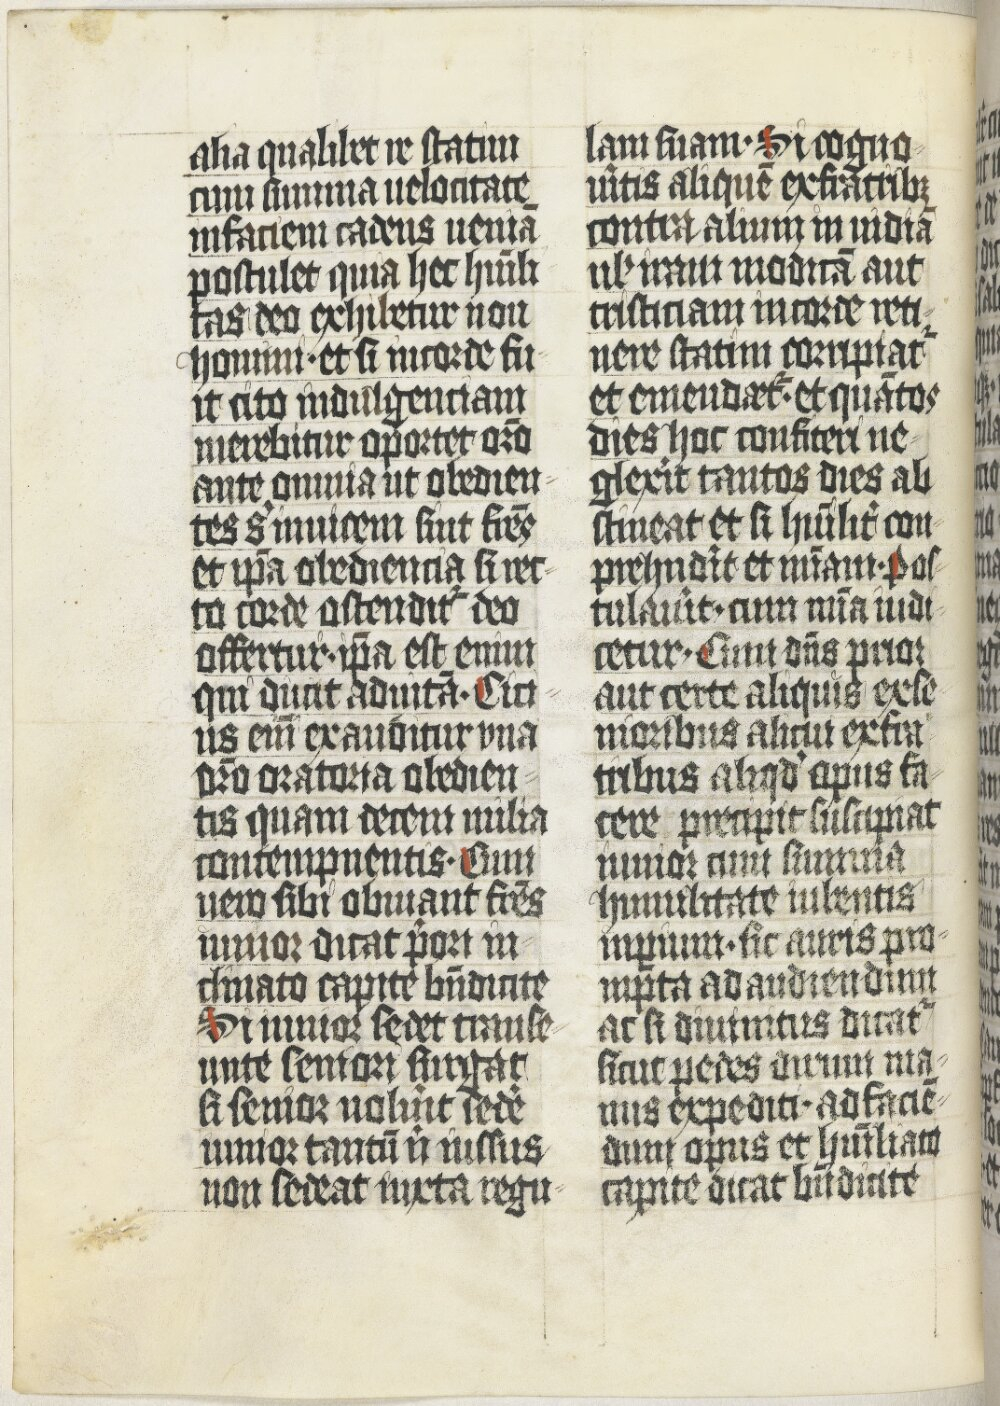 alia qualibet re statim
cum summa uelocitate
infaciem cadens ueniā
postulet quia hec hūili
tas deo exhibetur non
homini·et si incorde fu-
it cito indulgenciam
merebitur oportet orō
ante omnia ut obedien-
tes s᷑ inuicem sint frēs
et ip̄a obediencia si rec-
to corde ostendit᷑ deo
offertur·ip̄a est enim
qui ducit aduitā· Cici-
us eīn exauditur vna
orō oratoria obedien-
tis quam decem milia
contempnentis· Cum
uero sibi obuiant frēs
iunior dicat p̄ori in-
clinato capite bn̄dicite
Si iunior sedet transe-
unte seniori surgat
si senior uolūit sede᷑
iunior tantū n̄ iussus
non sedeat iuxta regu-
lam suam· Si cogno-
uītis aliquē exfrātribꝫ
contra alium in uidiā
ul̄ iram modicā aut
tristiciam incorde reti-
nere statim corripiat᷑
et emendat᷑· et quātos
dies hoc confiteri ne-
glexīt tantos dies ab
stineat et si hūilit᷑ con-
prehndīt et mīam· pos-
tulauīt· cum mīa iudi-
cetur· Cum dn̄s prior
aut certe aliquis exse-
nioribus alicui exfra
tribus aliqd᷑ opus fa-
cere precipit suscipiat
iunior cum summa
humilitate iubentis
inpium· sic auris pro-
mp̄ta ad audiendum
ac si diuinitus dicat᷑
sicut pedes cirum ma-
nus expediti· ad faciē-
dum opus et hūiliato
capite dicat bn̄dicite